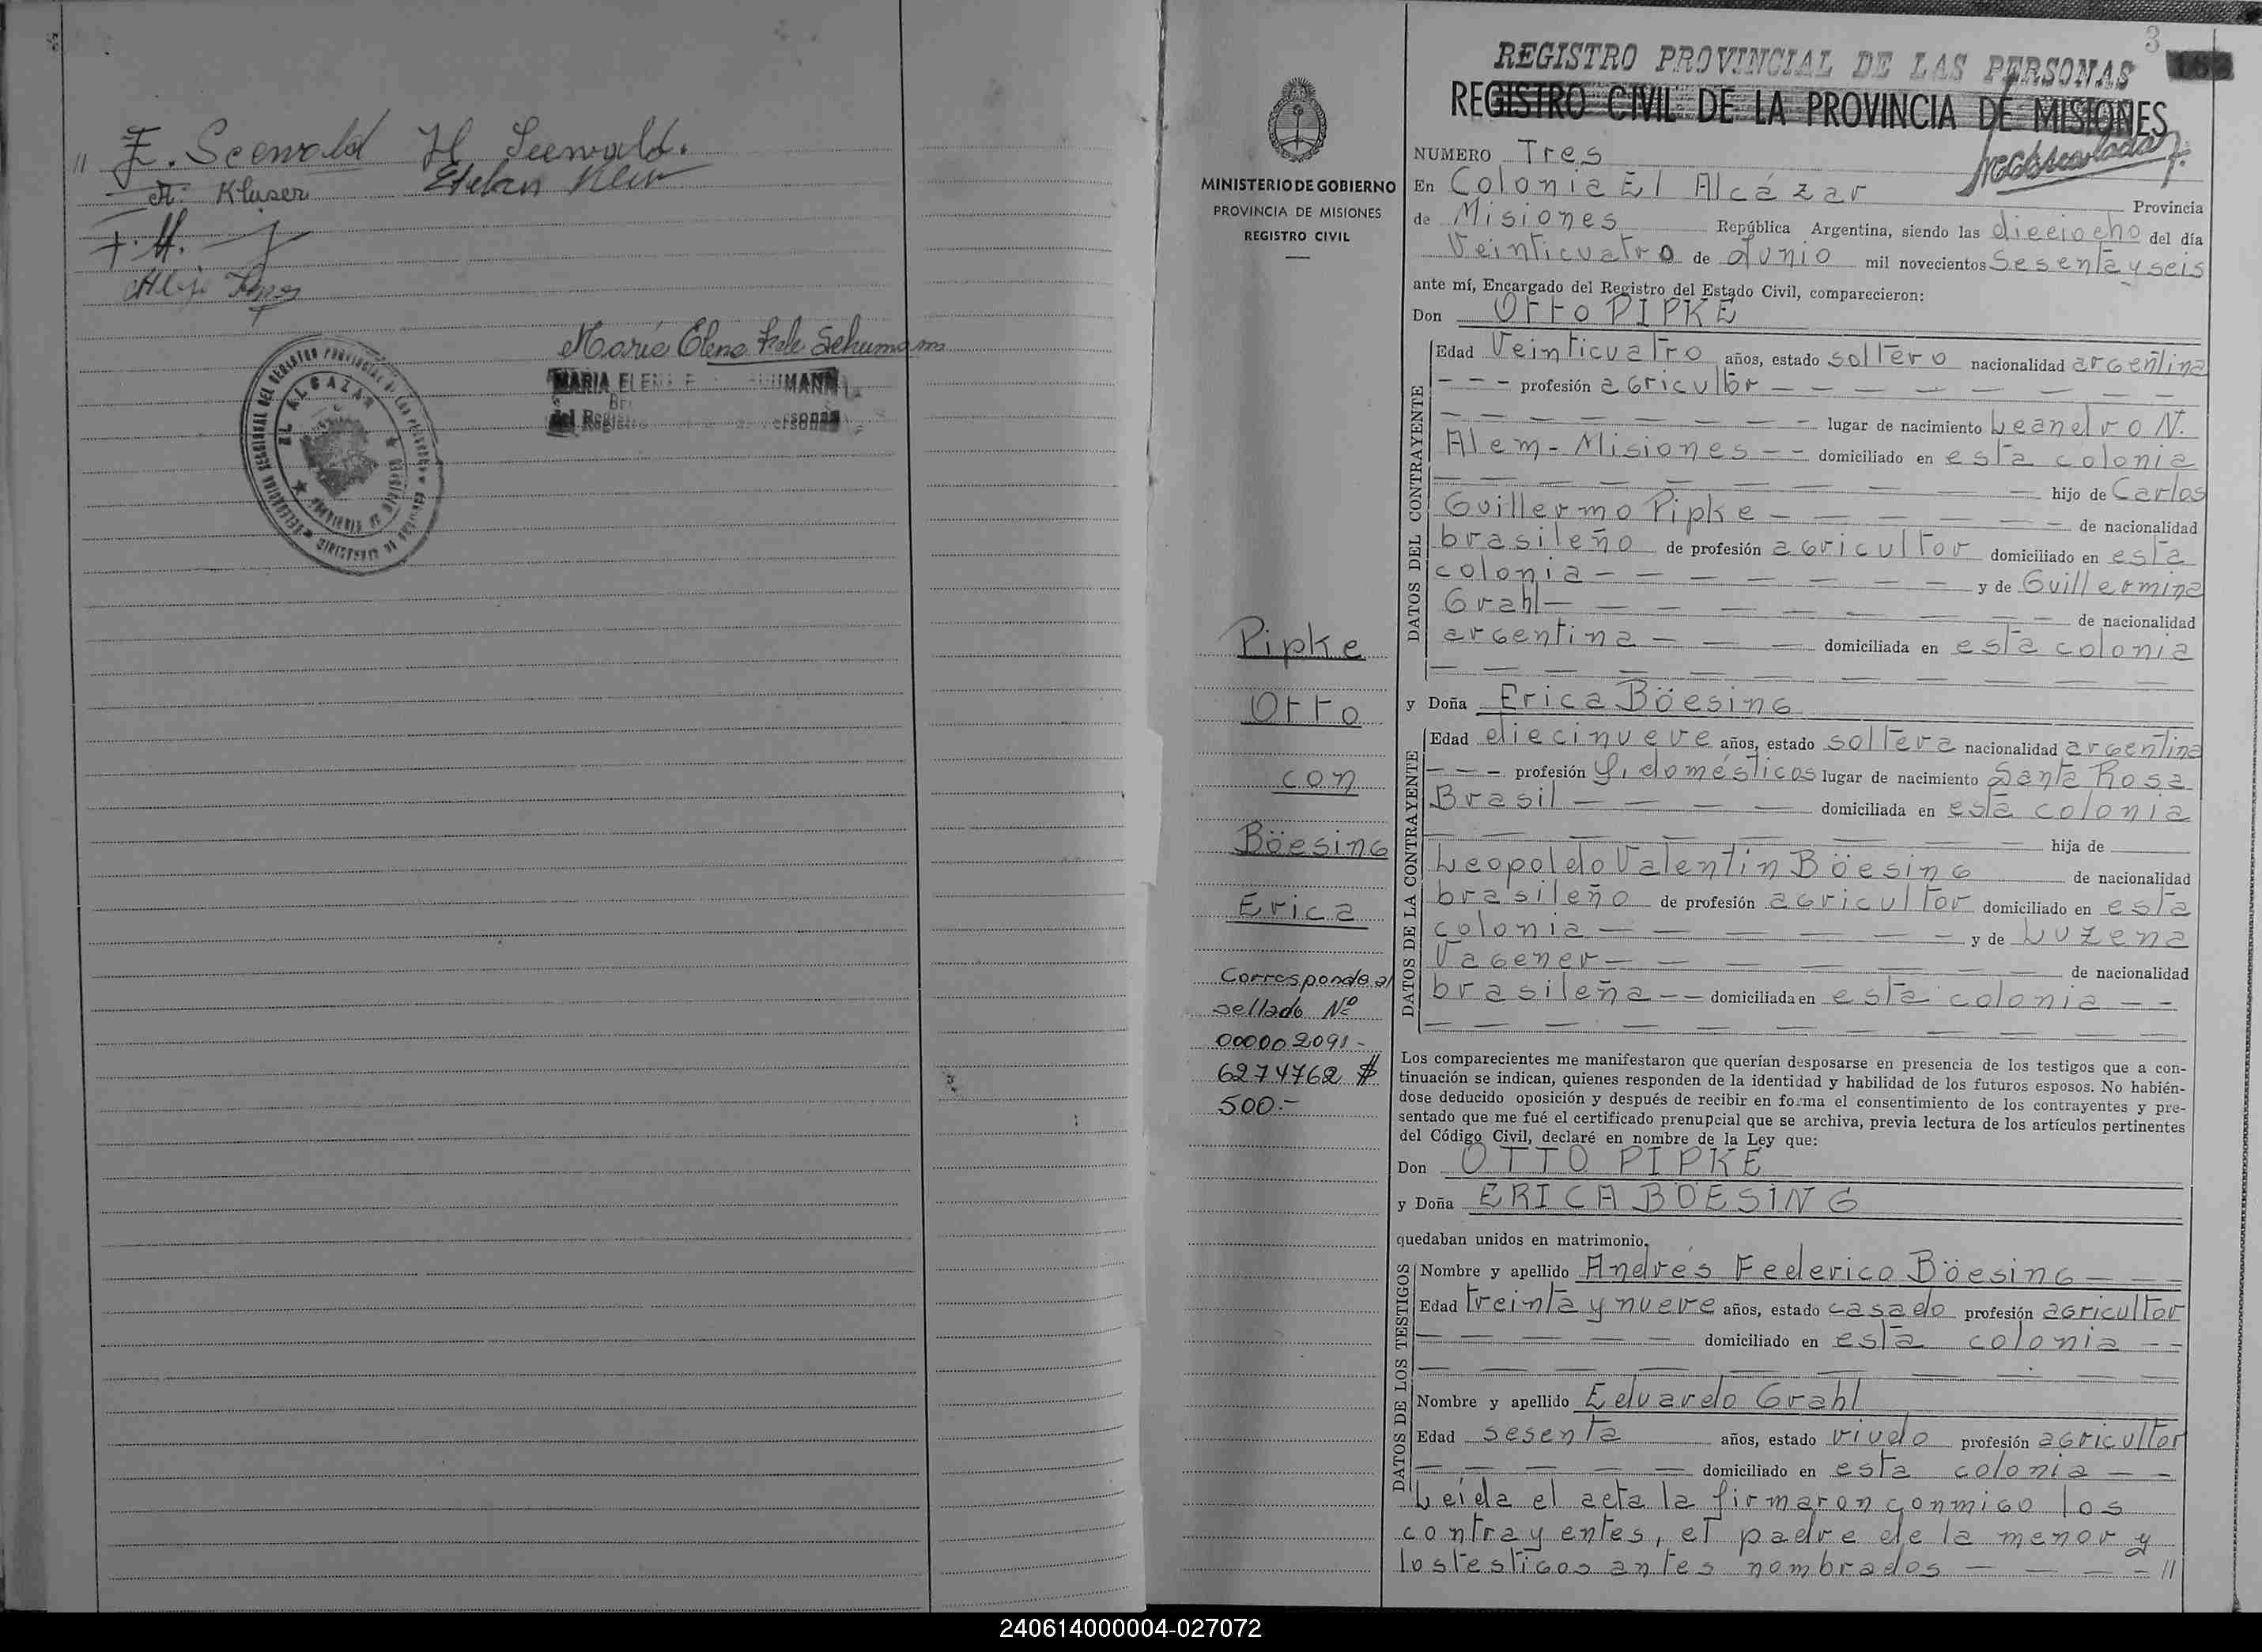 // E. Seewald H Seewald.
A. Kluser Esteban
F. H.
Maria Elena
MARIA ELENA
del Registro
EL ALCAZAR
3
REGISTRO PROVINCIAL DE LAS PERSONAS
REGISTRO CIVIL DE LA PROVINCIA DE MISIONES
MINISTERIO DE GOBIERNO
PROVINCIA DE MISIONES
REGISTRO CIVIL
Pipke
Otto
con
Böesing
Erica
Corresponde al
sellado Nº
000002091-
6274762 $
500.-
NUMERO Tres
En Colonia El Alcázar Provincia
de Misiones República Argentina, siendo las dieciocho del día
Veinticuatro de Junio mil novecientos Sesenta y seis
ante mí, Encargado del Registro del Estado Civil, comparecieron:
Don Otto PIPKE
DATOS DEL CONTRAYENTE
Edad Veinticuatro años, estado soltero nacionalidad argentina
- - - profesión agricultor - - - - - - -
- - - - - - - lugar de nacimiento Leandro N.
Alem - Misiones - - domiciliado en esta colonia
- - - - - - - - hijo de Carlos
Guillermo Pipke - - - - - - de nacionalidad
brasileño de profesión agricultor domiciliado en esta
colonia - - - - - - - - y de Guillermina
Grahl - - - - - - - - de nacionalidad
argentina - - - domiciliada en esta colonia
- - - - - - - - - -
y Doña Erica Böesing
DATOS DE LA CONTRAYENTE
Edad diecinueve años, estado soltera nacionalidad argentina
- - - profesión Q. domésticos lugar de nacimiento Santa Rosa
Brasil - - - - domiciliada en esta colonia
- - - - - - - - - hija de
Leopoldo Valentin Böesing de nacionalidad
brasileño de profesión agricultor domiciliado en esta
colonia - - - - - - y de Luzena
Vagener - - - - - - - de nacionalidad
brasileña - - domiciliada en esta colonia - -
- - - - - - - - - -
Los comparecientes me manifestaron que querían desposarse en presencia de los testigos que a con-
tinuación se indican, quienes responden de la identidad y habilidad de los futuros esposos. No habién-
dose deducido oposición y después de recibir en forma el consentimiento de los contrayentes y pre-
sentado que me fué el certificado prenupcial que se archiva, previa lectura de los artículos pertinentes
del Código Civil, declaré en nombre de la Ley que:
Don OTTO PIPKE
y Doña ERICA BÖESING
quedaban unidos en matrimonio.
DATOS DE LOS TESTIGOS
Nombre y apellido Andrés Federico Böesing - - -
Edad treinta y nueve años, estado casado profesión agricultor
- - - - - domiciliado en esta colonia - -
- - - - - - - - -
Nombre y apellido Eduardo Grahl
Edad sesenta años, estado viudo profesión agricultor
- - - - - domiciliado en esta colonia - -
Leída el acta la firmaron conmigo los
contrayentes, el padre de la menor y
los testigos antes nombrados - - - - //
240614000004-027072